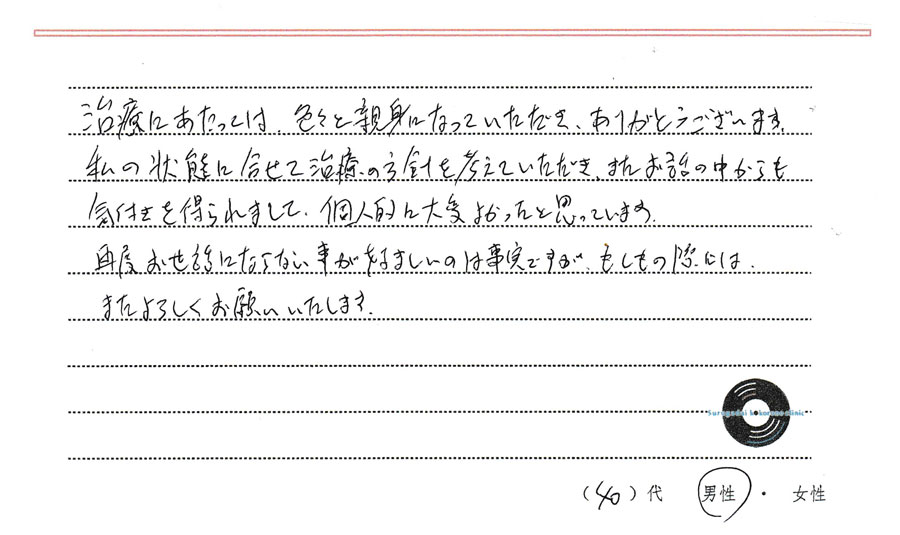 治療にあたっては、色々と親身になっていただき、ありがとうございます。
私の状態に合せて治療の方針を考えていただき、またお話の中からも
気付きを得られまして、個人的に大変よかったと思っています。
再度お世話にならない事が好ましいのは事実ですが、もしもの際には、
またよろしくお願いいたします。
Surugadai kokorono clinic
(40)代 男性・女性